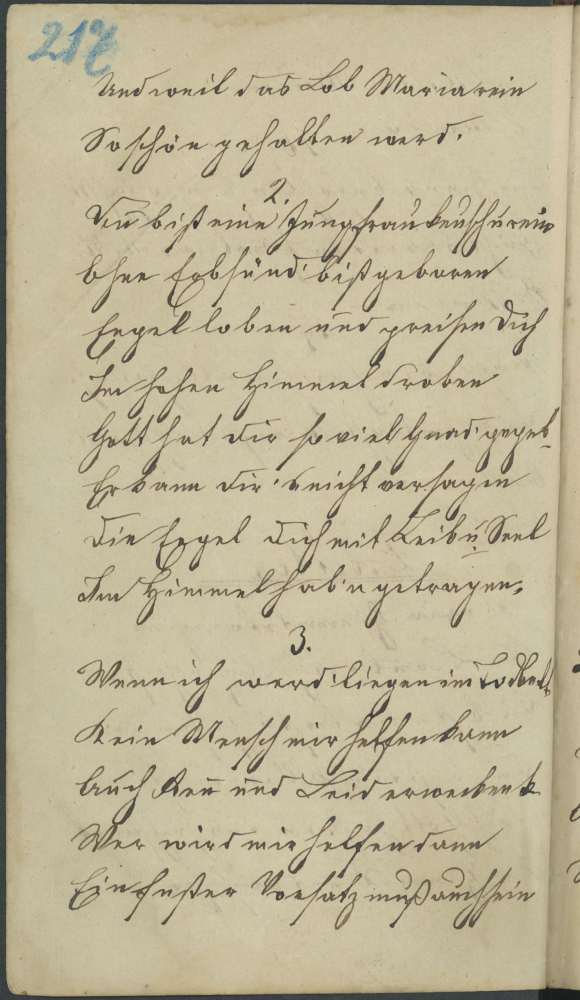 217
Und weil das Lob Maria rein
So schön gehalten werd.
2.
Du bist eine Jungfrau keusch u rein
Ohne Erbsünd' bist geboren
Engel loben und preisen Dich
Im hohen Himmel droben
Gott hat dir so viel Gnad' gegeb-
Er kann dir's nicht versagen
Die Engel dich mit Leib u Seel
Im Himmel hab'n getragen.
3.
Wenn ich werd' liegen im Todbett
Kein Mensch mir helfen kann
Auch Reu und Leid erwecken
Wer wird mir helfen dann
Ein fester Vorsatz muß auch sein